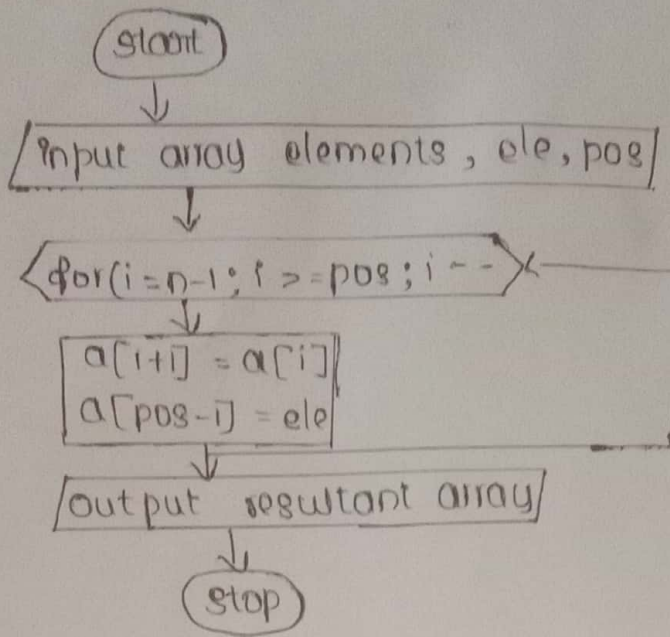 start
input array elements, ele, pos
for(i=n-1; i>=pos; i--)
a[i+i] = a[i]
a[pos-i] = ele
output resultant array
stop